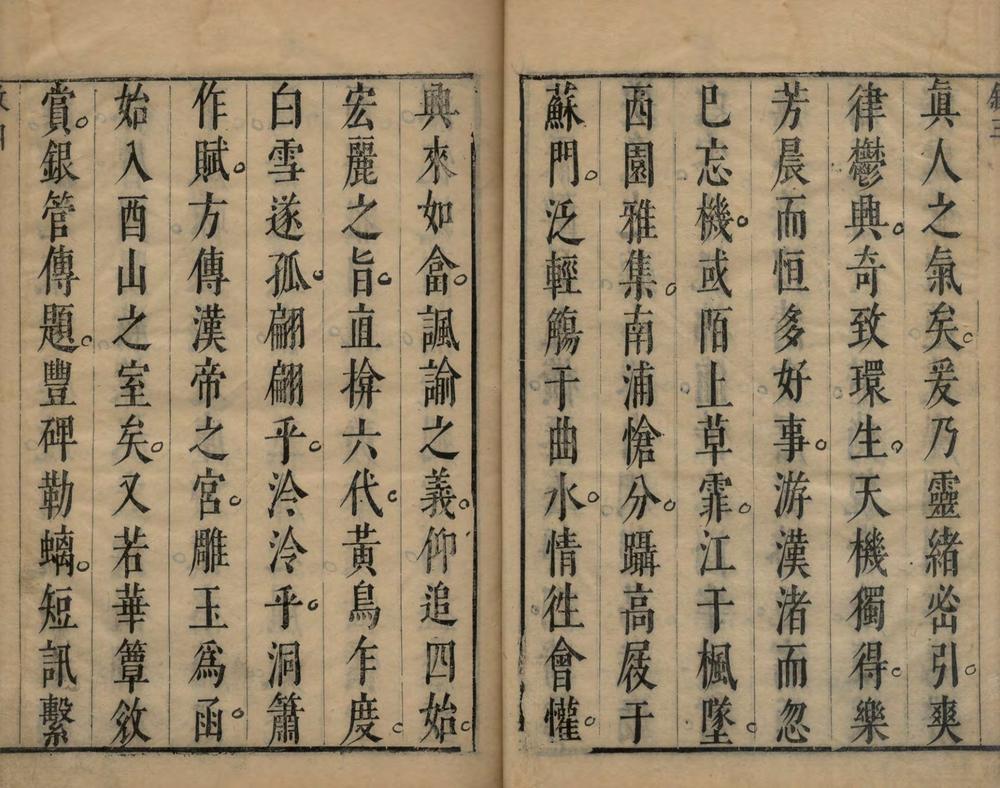 眞人之氣矣。爰乃靈緒宻引。爽
律鬱興。奇致環生。天機獨得。樂
芳晨而恒多好事。游漢渚而忽
巳忘機。或陌上草霏。江干楓墜。
西園雅集。南浦愴分。躡高屐于
蘇門。泛輕觴于曲水。情徃會懽。
興來如畣。諷諭之義。仰追四始。
宏麗之旨。直揜六代。黃鳥乍度。
白雪遂孤。翩翩乎。泠泠乎。洞簫
作賦。方傳漢帝之宮。雕玉爲函。
始入酉山之室矣。又若華簟敘
賞。銀管傳題。豐碑勒螭。短訊繫